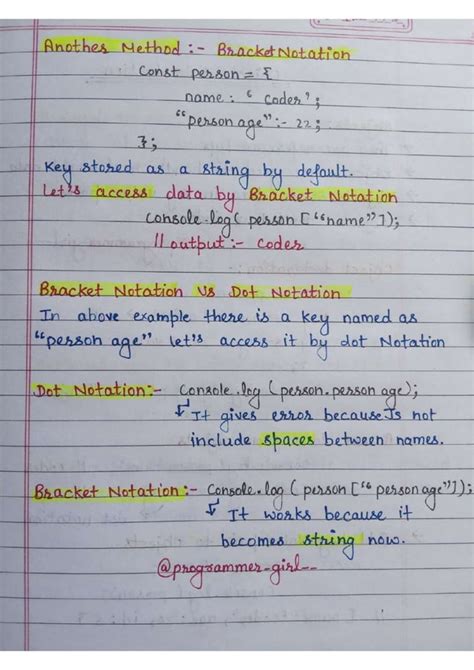 Another Method :- Bracket Notation
Const person = {
name : ‘ Coder’ ;
“person age” :- 22 ;
} ;
Key stored as a string by default.
Let's access data by Bracket Notation
Console.log( person [““name”]);
// output :- Coder
Bracket Notation Vs Dot Notation
In above example there is a key named as
“person age” let's access it by dot Notation
Dot Notation:- Console.log (person.person age);
It gives error because Js not
include spaces between names.
Bracket Notation :- Console.log ( person [“ person age”]);
It works because it
becomes string now.
@programmer_girl__